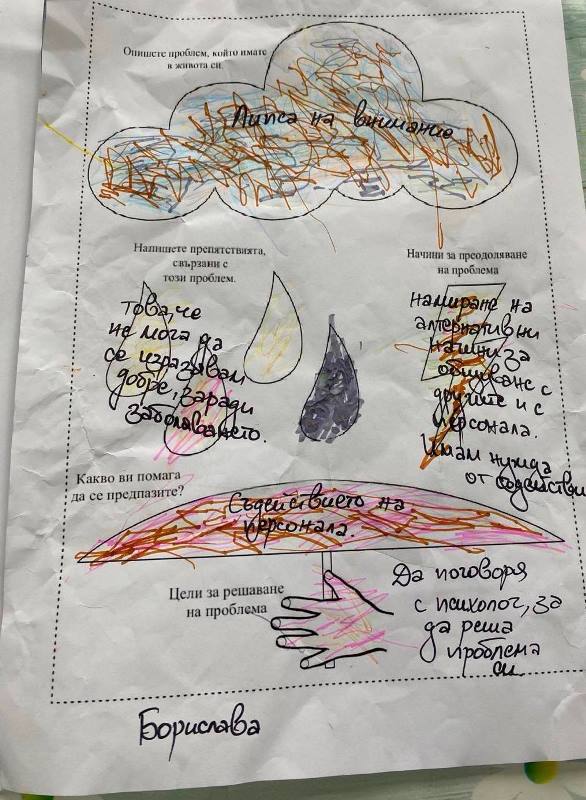 Опишете проблем, който имате
в живота си.
Липса на внимание
Напишете препятствията,
свързани с
този проблем.
Начини за преодоляване
на проблема
това, че
не мога да
се изразявам
добре, заради
заболяването.
намиране на
алтернативни
начини за
общуване с
другите и с
персонала.
Имам нужда
от съдействи
Какво ви помага
да се предпазите?
Съдействието на
персонала.
Цели за решаване
на проблема
Да поговоря
с психолог, за
да реша
проблема
си.
Борислава